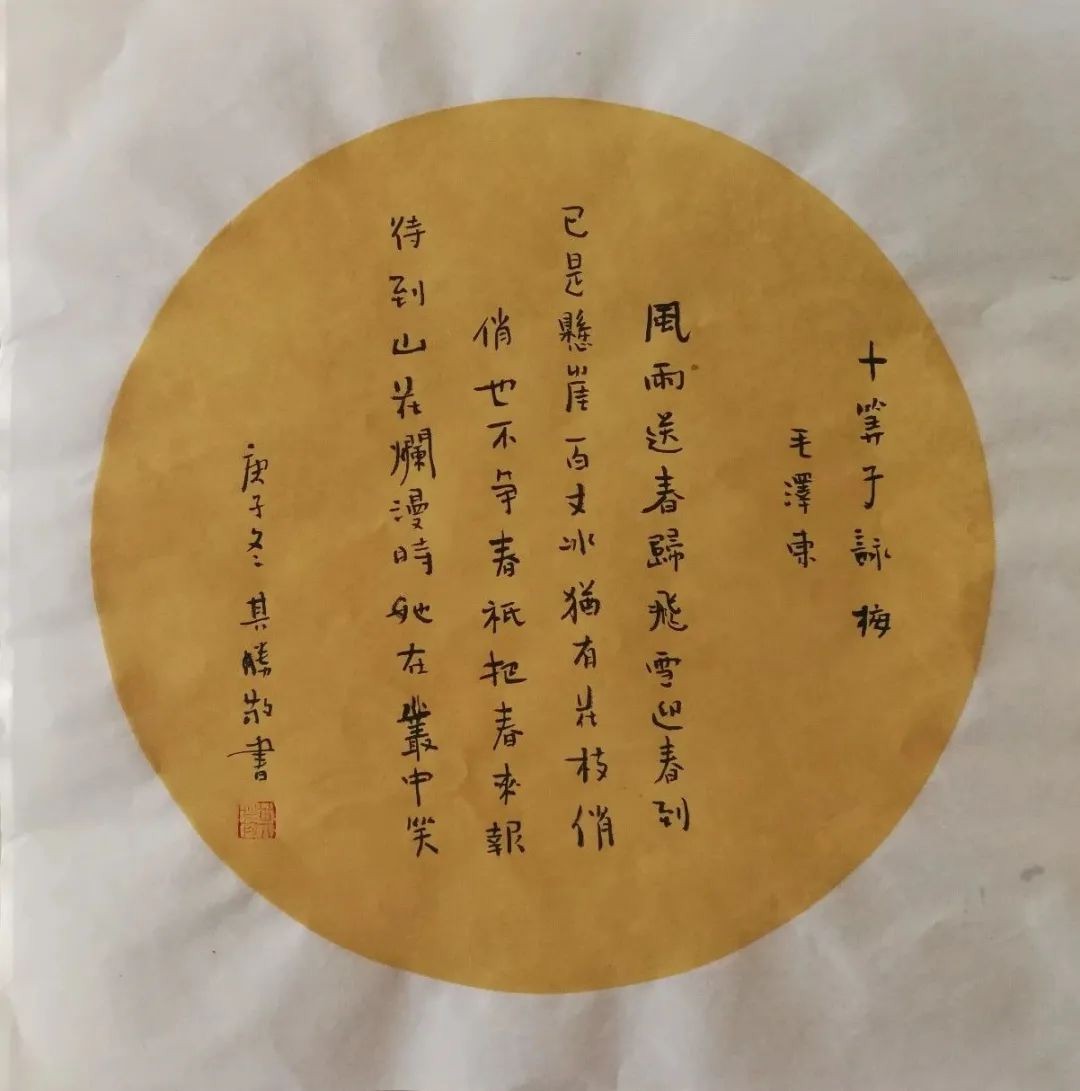 卜筭子詠梅
毛澤東
風雨送春歸飛雪迎春到
已是懸崖百丈冰猶有花枝俏
俏也不爭春祇把春來報
待到山花爛漫時她在叢中笑
庚子冬其勝敬書